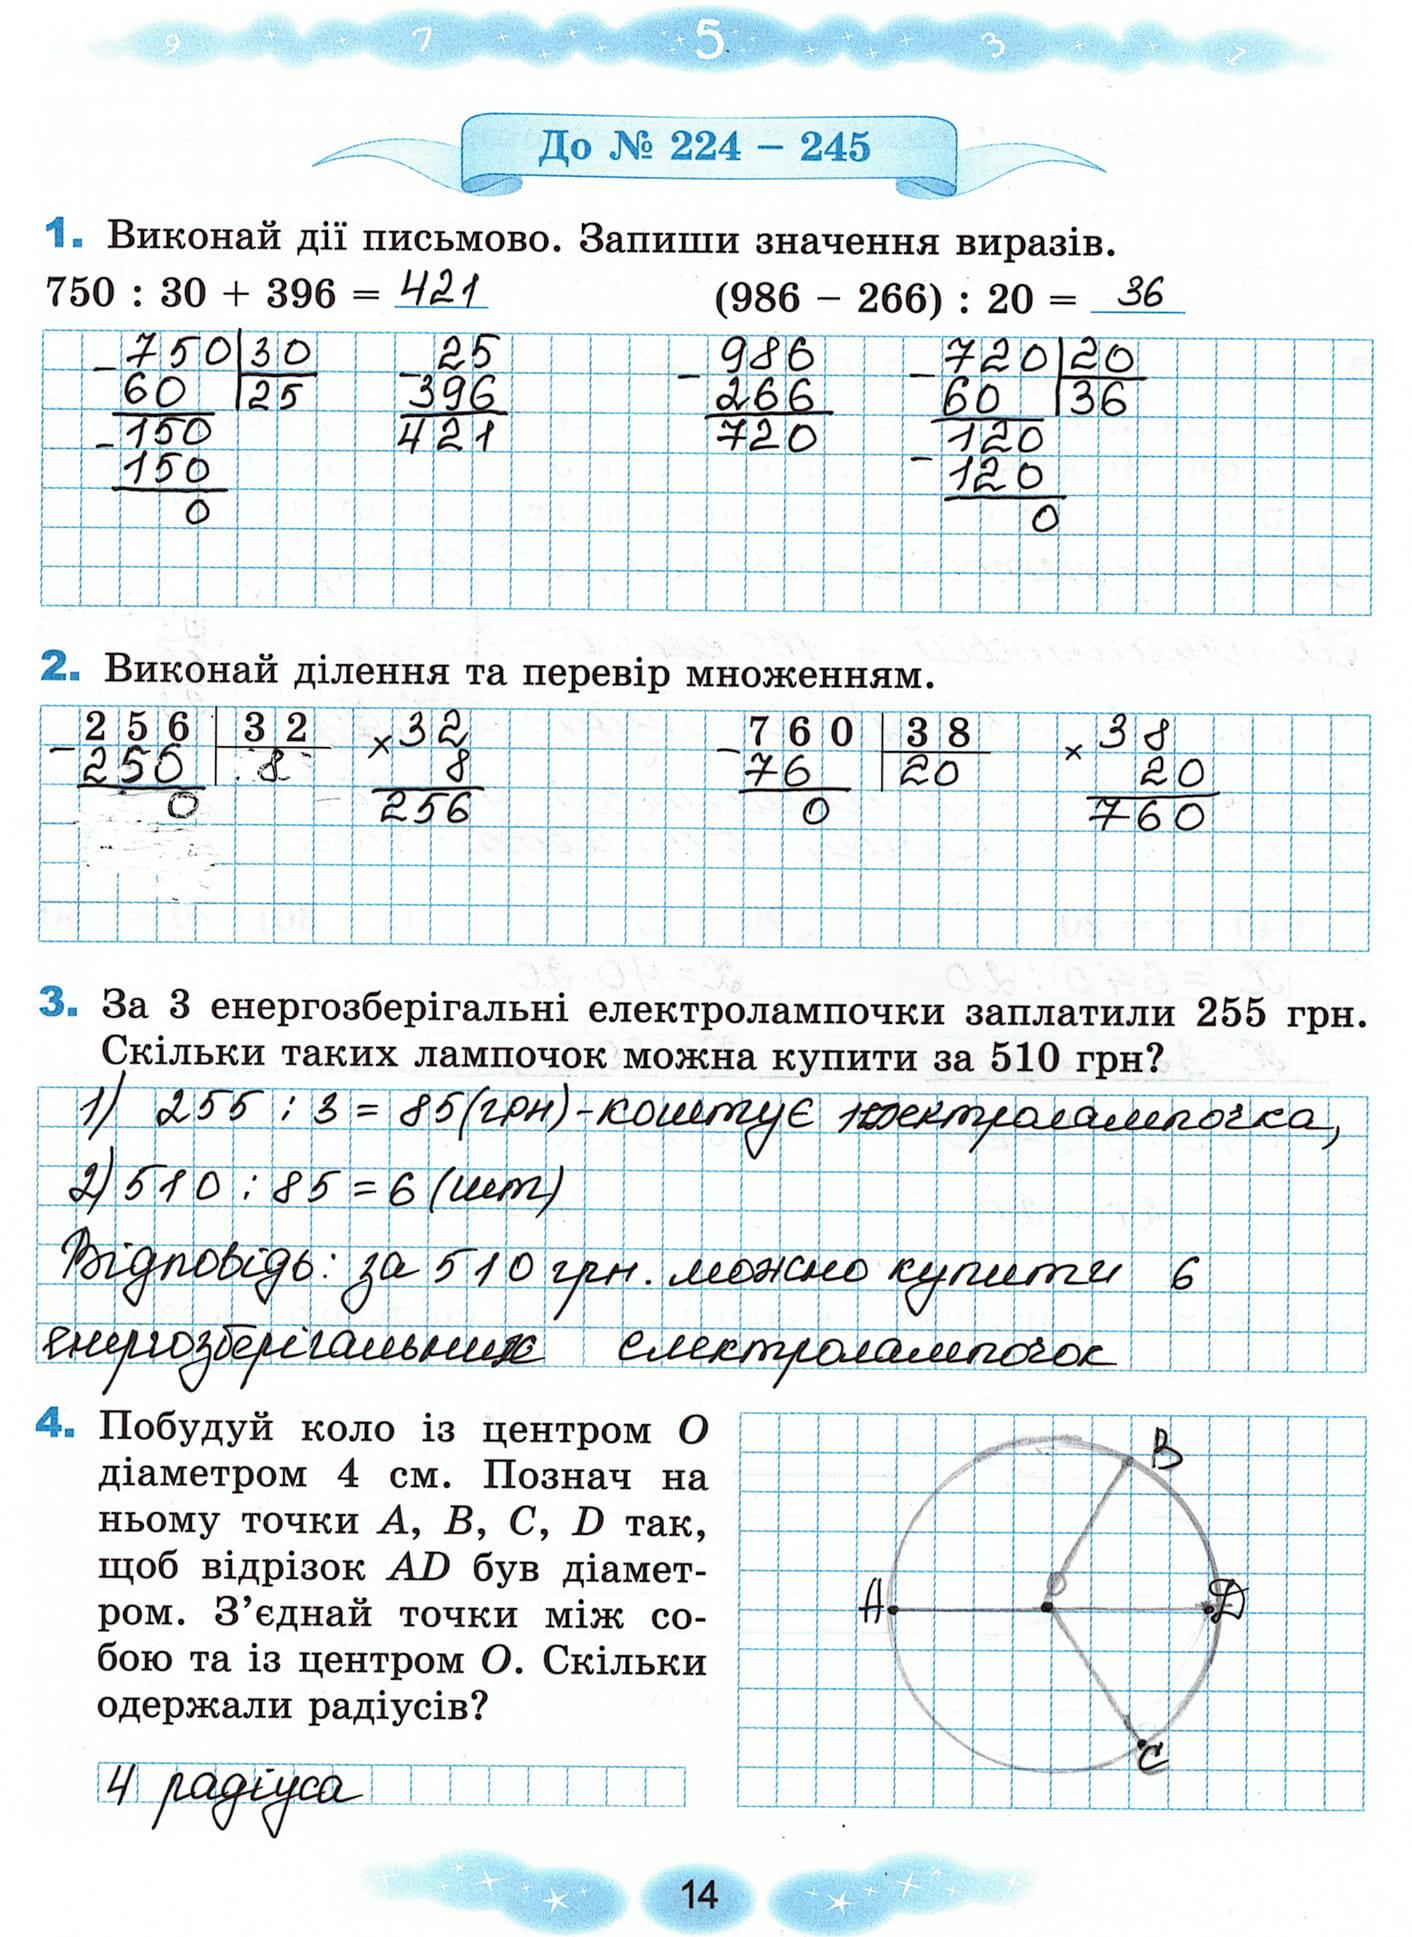 9 7 5 3 1
До № 224 – 245
1. Виконай дії письмово. Запиши значення виразів.
750 : 30 + 396 = 421 (986 – 266) : 20 = 36
– 750 | 30 – 25 – 986 – 720 | 20
60 | 25 396 266 60 | 36
– 150 421 720 – 120
150 120
0 0
2. Виконай ділення та перевір множенням.
– 256 | 32 × 32 – 760 | 38 × 38
250 | 8 8 76 | 20 20
0 256 0 760
3. За 3 енергозберігальні електролампочки заплатили 255 грн.
Скільки таких лампочок можна купити за 510 грн?
1) 255 : 3 = 85 (грн) - коштує 1 електролампочка,
2) 510 : 85 = 6 (шт)
Відповідь: за 510 грн. можно купити 6
енергозберігальних електролампочок
4. Побудуй коло із центром O
діаметром 4 см. Познач на
ньому точки A, B, C, D так,
щоб відрізок AD був діамет-
ром. З’єднай точки між со-
бою та із центром O. Скільки
одержали радіусів?
4 радіуса
B
A O D
C
14